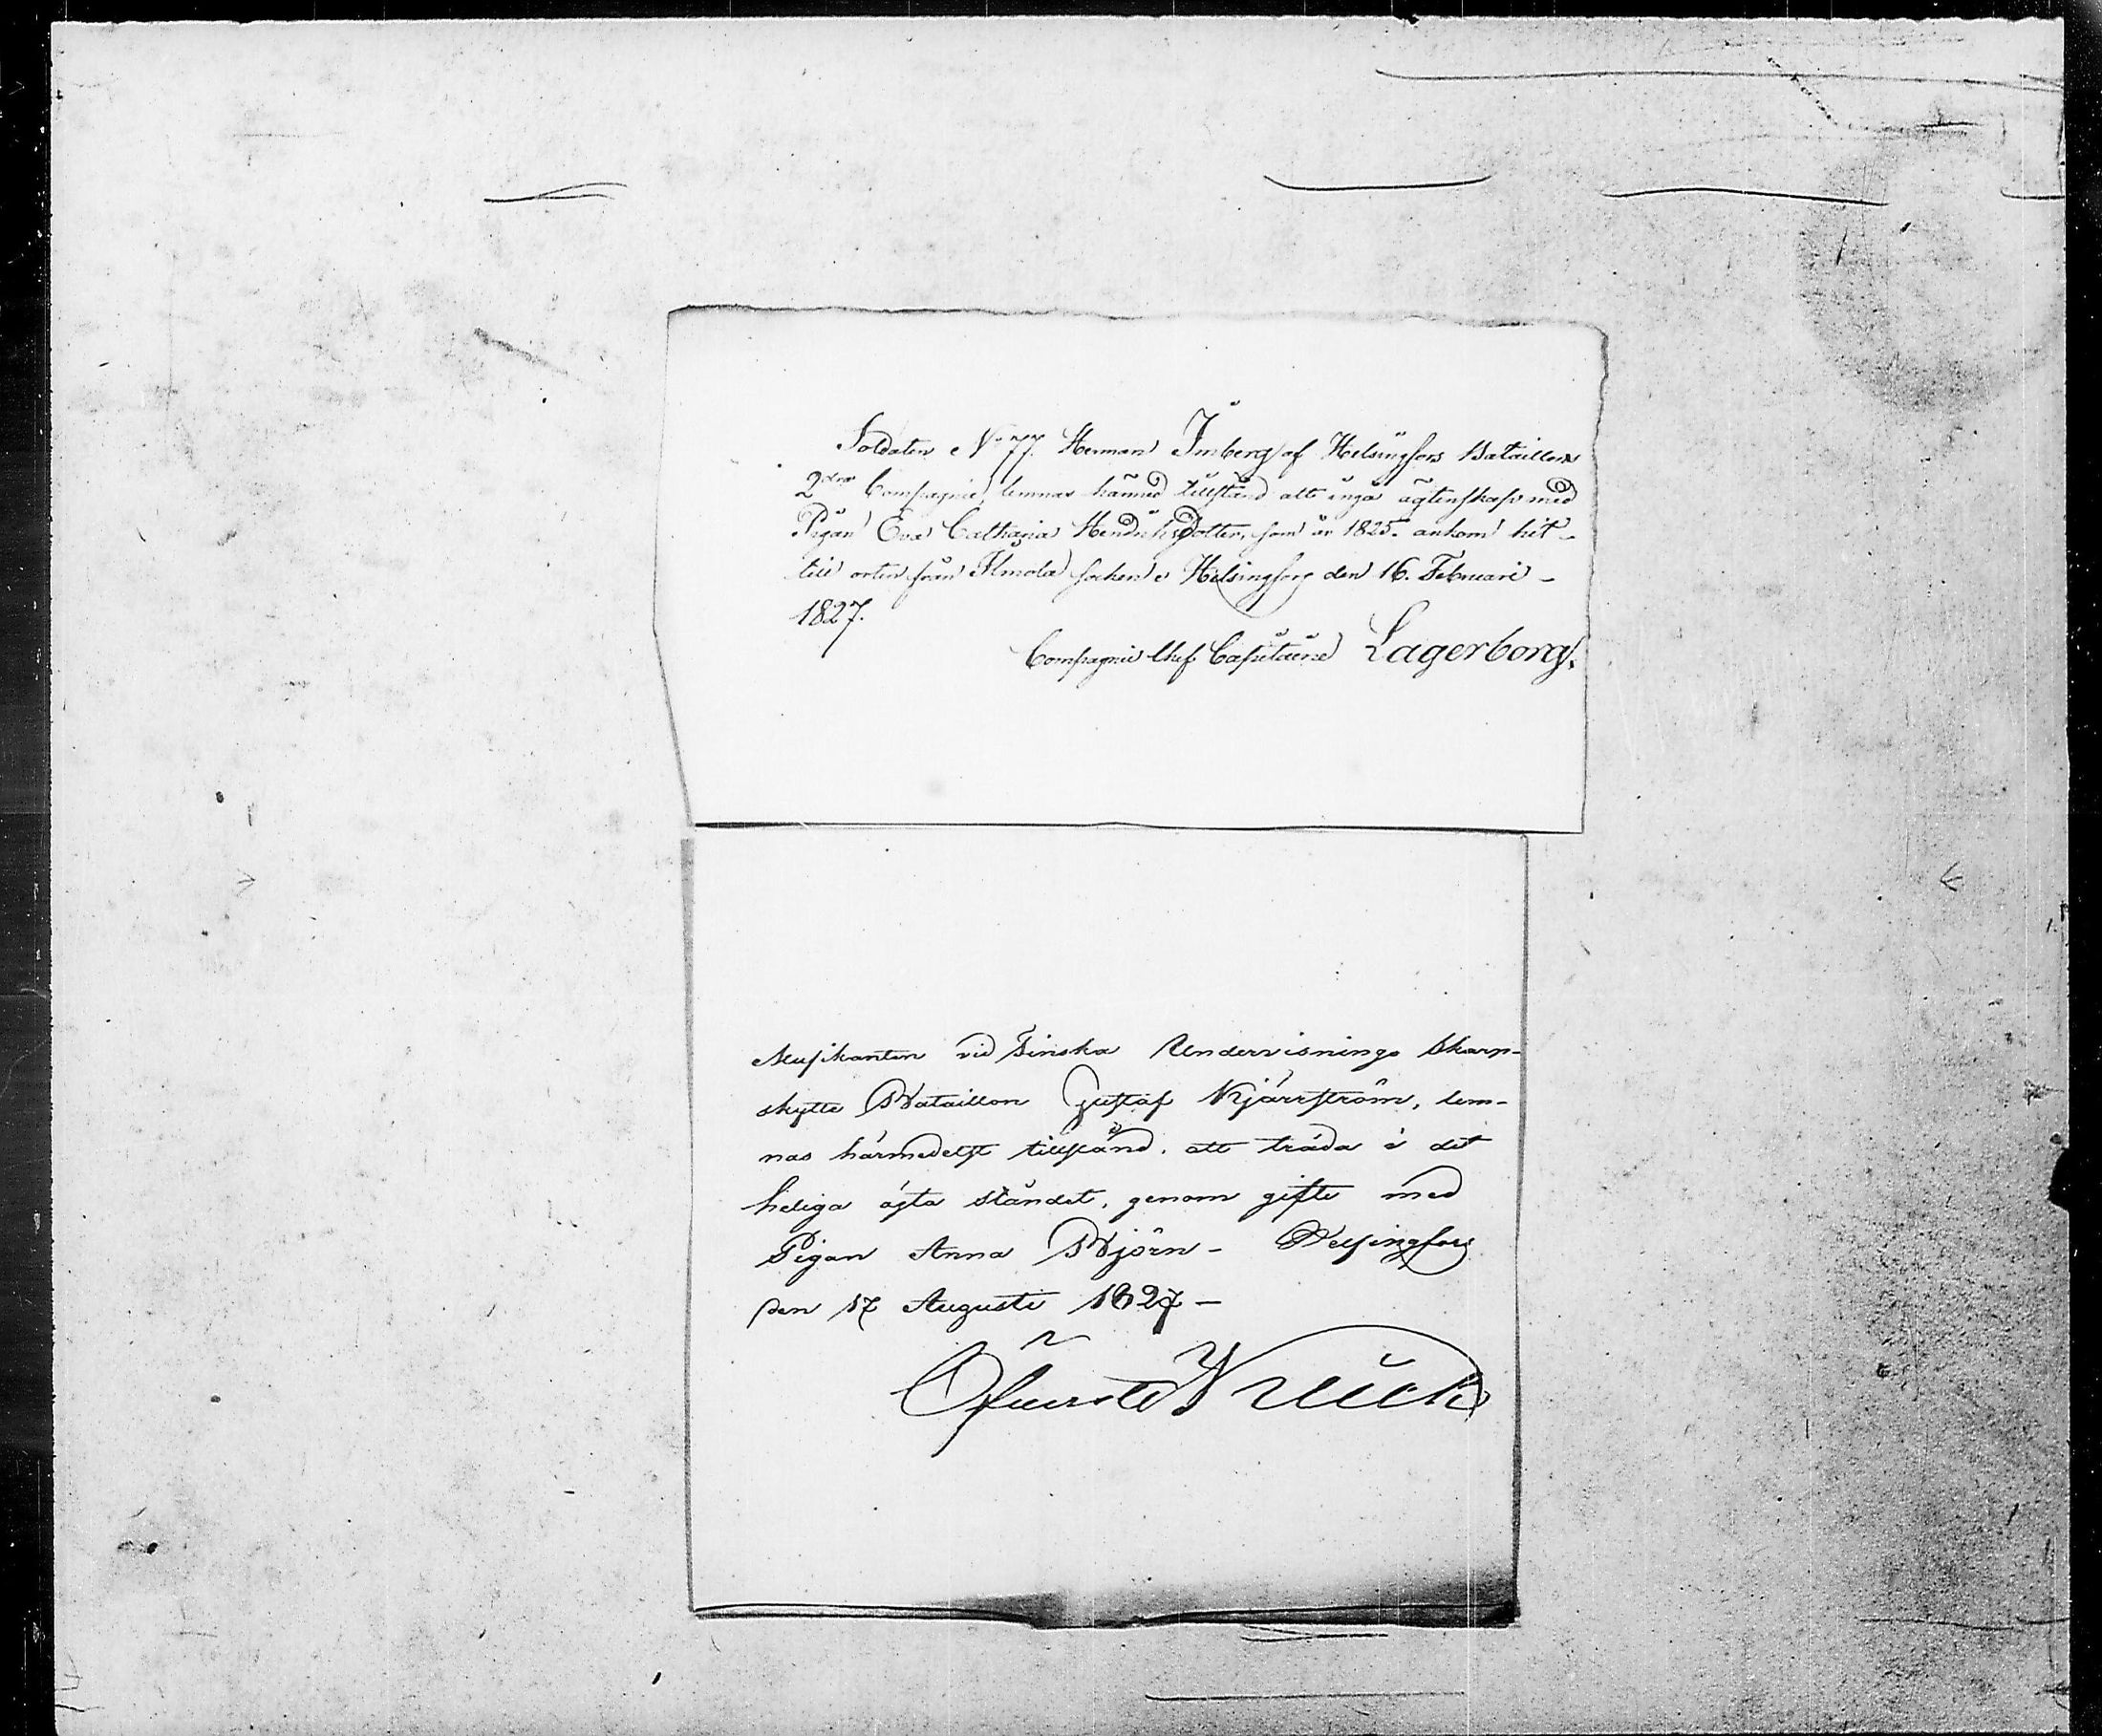 Soldaten No 77. Herman Imberg af Helsingfors Bataillons
2dra Compagnie, lemnas härmed tillstånd att ingå ägtenskap med
Pigan Eva Catharina Hendriksdotter, som år 1825. ankom hit-
till orten från Ilmola socken. Helsingfors den 16. Februari -
1827.
Compagnie Chef Capitaine Lagerborg.
Musikanten vid Finska Undervisnings Skarp-
skytte Bataillon Gustaf Kjärrström, lem-
nas härmedelst tillstånd. att träda i det
heliga ägta ståndet, genom gifte med
Pigan Anna Björn - Helsingfors
den 17 Augusti 1827 -
Öfverste